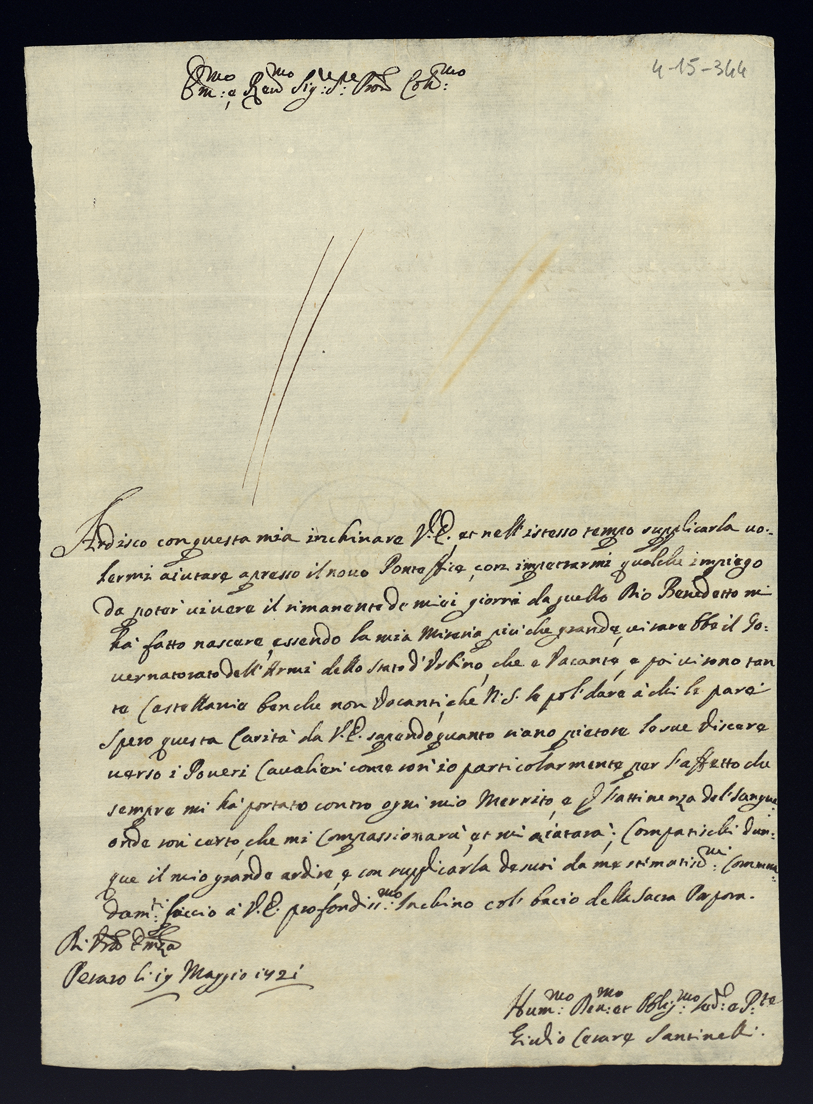 4-15-344
Em:mo e Reu:mo Sig:re Sig:re Pron Col:mo
Ardisco con questa mia inchinare V.E. et nell'istesso tempo supplicarla uo:
lermi aiutare apresso il nouo Ponteffice, con impetrarmi qualche impiego
da poter uiuere il rimanente de miei giorni da quello Dio Benedetto mi
hà fatto nascere, essendo la mia Miseria più che grande, ui sarebbe il Go:
uernatorato dell'Armi dello Stato d'Urbino, che è Vacante, e poi ui sono tan
te Castellanie benche non Vacanti, che N.S. le pol dare à chi le pare
Spero questa Carità da V.E. sapendo quanto siano pietose le sue Viscere
uerso i Poueri Cavalieri come son io particolarmente per l'affetto che
sempre mi hà portato contro ogni mio Merrito, e p l'attinenza del sangue
onde son certo, che mi Compassionarà, et mi aiatarà: Compatischi dun:
que il mio grande ardire, e con supplicarla de suoi da me stimatiss:mi Comman
dam:ti faccio à V.E. profondiss:mo Inchino col bacio della Sacra Porpora.
Di Vra Emza
Pesaro li 19 Maggio 1721
Hum:mo Deu:mo et Obblig:mo Sed: e P:te
Giulio Cesare Santinelli.